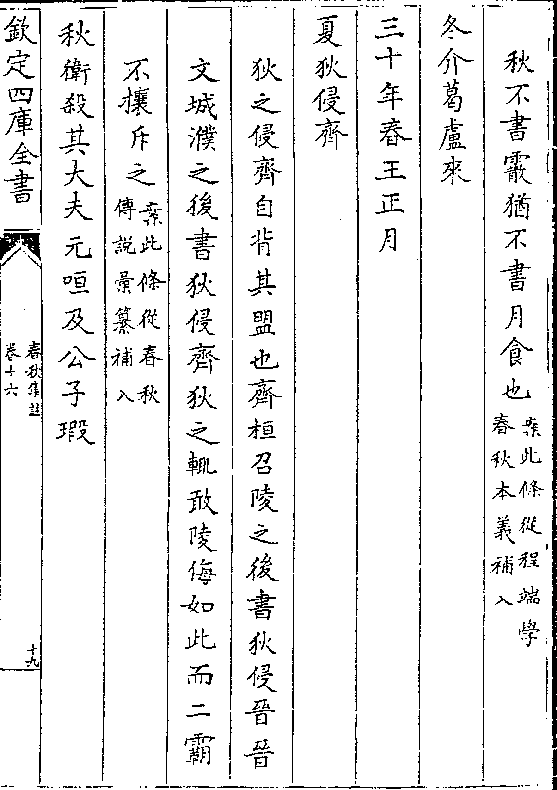 秋不書霰猶不書月食也案此條從程端學
春秋本義補入
冬介葛盧來
三十年春王正月
夏狄侵齊
狄之侵齊自背其盟也齊桓召陵之後書狄侵晉晉
文城濮之後書狄侵齊狄之輒敢陵侮如此而二霸
不攘斥之案此條從春秋
傳說彚纂補入
秋衛殺其大夫元咺及公子瑕
欽定四庫全書
春秋集註
卷十六
十九